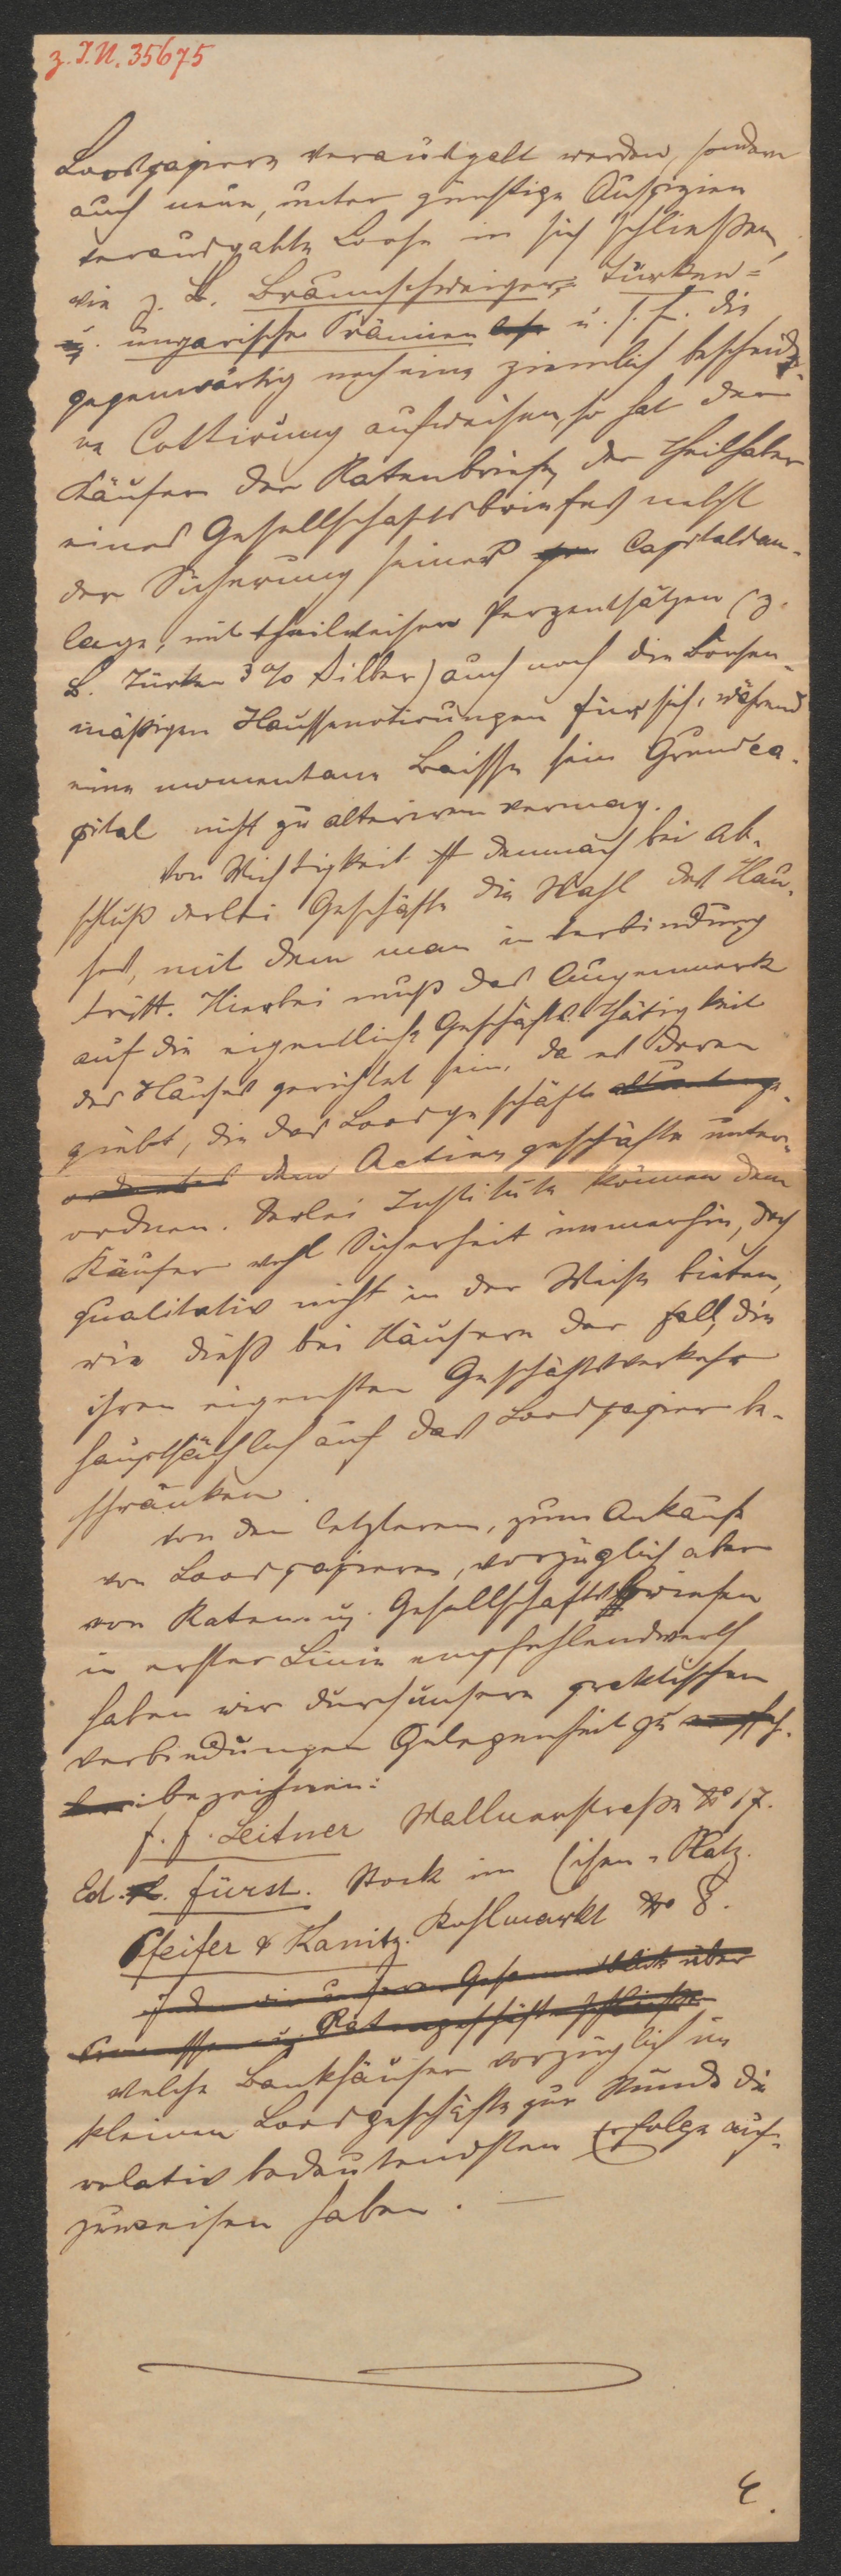 z. I.N. 35675
Loospapiere verausgabt werden, sondern
auch neue, unter günstige Auspizien
verausgabte Loose in sich schließen,
wie z. B. Braunschweiger-, Türken-
u. ungarische Prämien u. s. f. die
gegenwärtig noch eine ziemlich bescheide-
ne Cottirung aufweisen, so hat der
Käufer der Ratenbriefe, der Theilhaber
eines Gesellschaftsbriefes nebst
der Sicherung seines Capitalsan-
lage, mit theilweisen Perzentsätzen (z.
B. Türken 3% Silber) auch noch die börsen-
mäßigen Haussenotirungen für sich, während
eine momentane Baisse sein Grundca-
pital nicht zu alteriren vermag.
Von Wichtigkeit ist demnach bei Ab-
schluß derlei Geschäfte die Wahl des Hau-
ses, mit dem man in Verbindung
tritt. Hierbei muß das Augenmerk
auf die eigentliche Geschäftsthätigkeit
des Hauses gerichtet sein, da es deren
giebt, die das Loosgeschäft
dem Actiengeschäfte unter-
ordnen. Derlei Institute können dem
Käufer wohl Sicherheit immerhin, doch
qualitativ nicht in der Weise bieten,
wie dieß bei Häusern der Fall, die
ihren eigensten Geschäftsverkehr
hauptsächlich auf das Loospapier be-
schränken.
Von den letzteren, zum Ankaufe
von Loospapieren, vorzüglich aber
von Raten- u. Gesellschaftsbriefen
in erster Linie empfehlenswerth
haben wir durch unsere praktischen
Verbindungen Gelegenheit zu
bezeichnen:
J. J. Leitner Wallnerstraße No 17.
Ed. Fürst. Stock im Eisen-Platz.
Pfeifer & Kanitz. Kohlmarkt No 8.
indem wir unsern Gesammtblick über
Promessen u. Ratengeschäfte schließen
welche Bankhäuser vorzüglich im
kleinen Loosgeschäfte zur Stunde die
relativ bedeutendsten Erfolge auf-
zuweisen haben. —